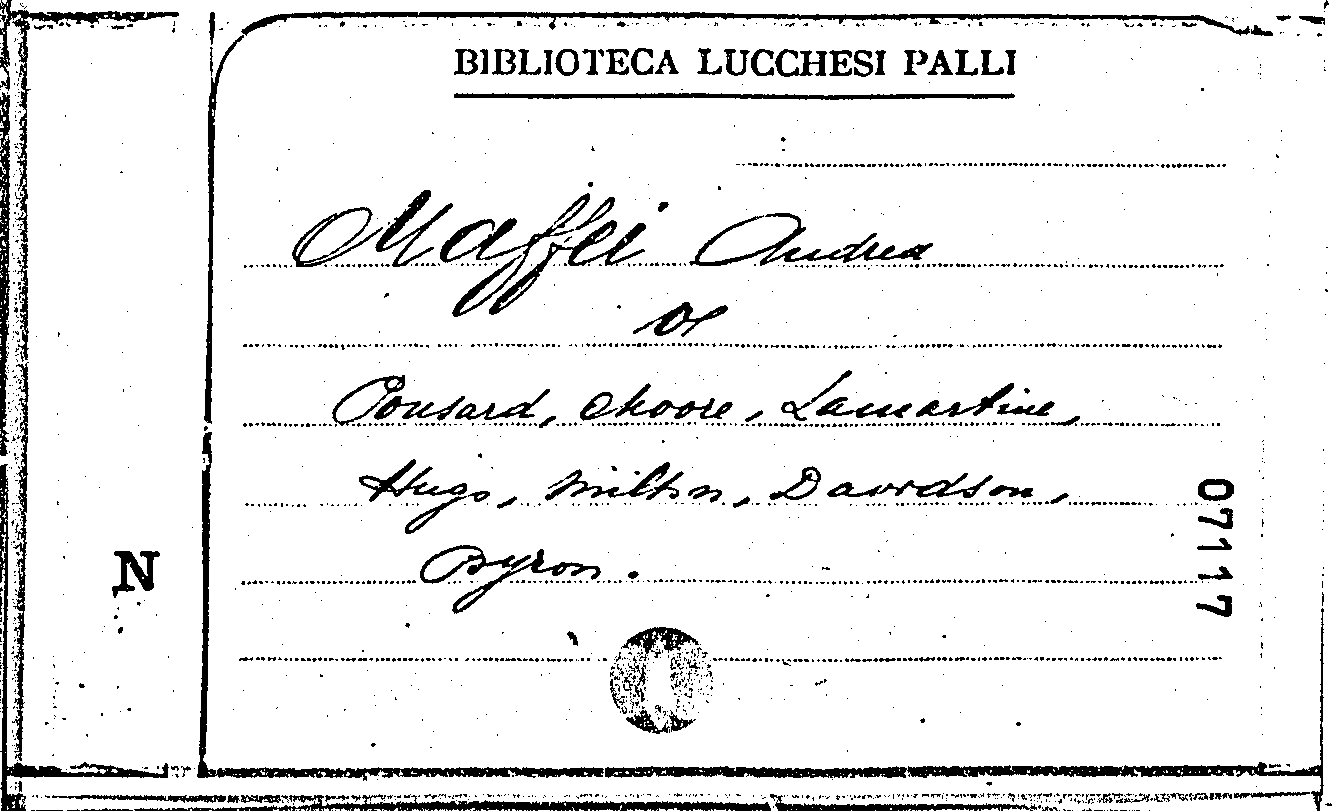 BIBLIOTECA LUCCHESI PALLI
Maffei Andrea
Ponsard, Moore, Lamartine,
Hugo, Milton, Davidson,
Byron.
N
07117